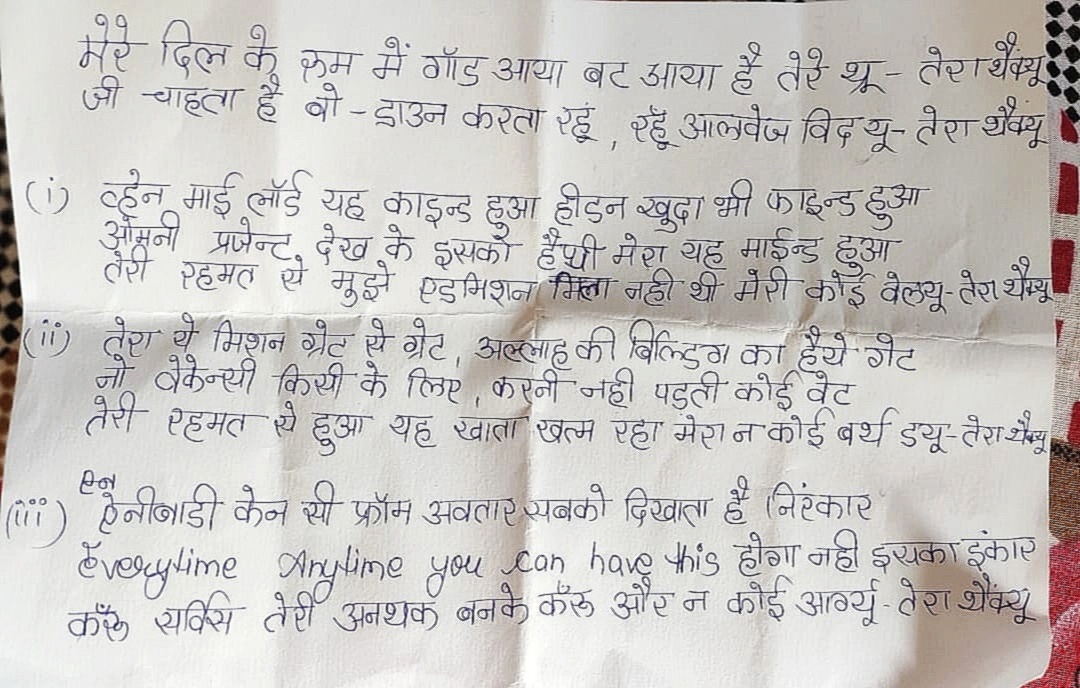 मेरे दिल के रूम में गॉड आया बट आया है तेरे थ्रू - तेरा थैंक्यू
जी चाहता है बो - डाउन करता रहूं , रहूँ आलवेज विद यू - तेरा थैंक्यू
(i) व्हेन माई लॉर्ड यह काइन्ड हुआ हीडन खुदा भी फाइन्ड हुआ
ओमनी प्रजेन्ट देख के इसको हैप्पी मेरा यह माईन्ड हुआ
तेरी रहमत से मुझे एडमिशन मिला नही थी मेरी कोई वेलयू - तेरा थैंक्यू
(ii) तेरा ये मिशन ग्रेट से ग्रेट , अल्लाह की बिल्डिंग का है ये गेट
नो वेकेन्सी किसी के लिए , करनी नही पड़ती कोई वेट
तेरी रहमत से हुआ यह खाता खत्म रहा मेरा न कोई बर्थ डयू - तेरा थैंक्यू
एन
(iii) ऐनीबाडी केन सी फ्रॉम अवतार सबको दिखाता है निरंकार
Everytime Anytime you can have this होगा नही इसका इंकार
करूँ सर्विस तेरी अनथक बनके करूँ और न कोई आर्ग्यू - तेरा थैंक्यू